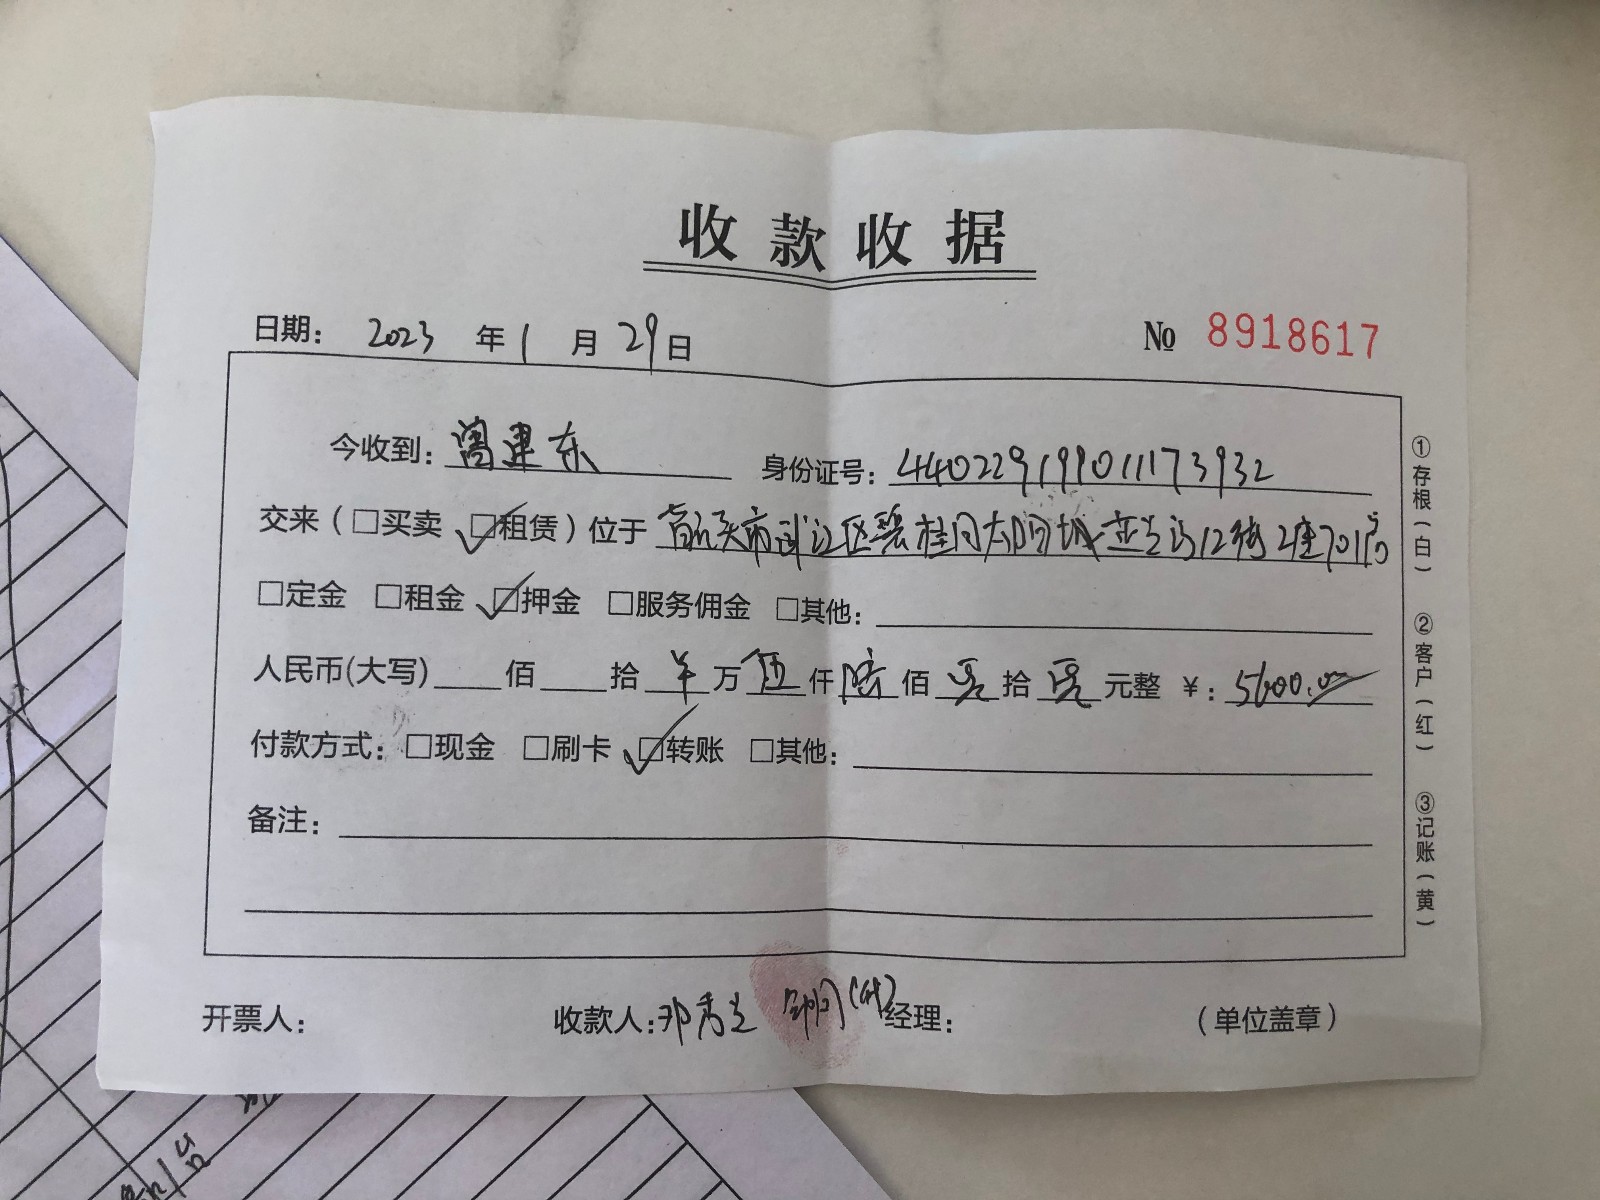 收款收据
日期： 2023 年 1 月 29 日 № 8918617
今收到： 建东 身份证号： 440229199011173932
交来（□买卖 ☑租赁）位于 市武江区碧桂园太阳城 12街2座701房
□定金 □租金 ☑押金 □服务佣金 □其他：
人民币(大写) 佰 拾 万 伍 仟 陆 佰 零 拾 零 元整 ¥： 5600.00
付款方式： □现金 □刷卡 ☑转账 □其他：
备注：
开票人： 收款人： 邓秀兰 (代) 经理： （单位盖章）
①存根（白） ②客户（红） ③记账（黄）